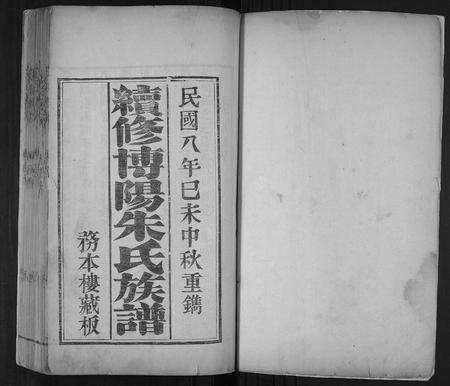 民國八年己未中秋重鐫
續修博陽朱氏族譜
務本樓藏板